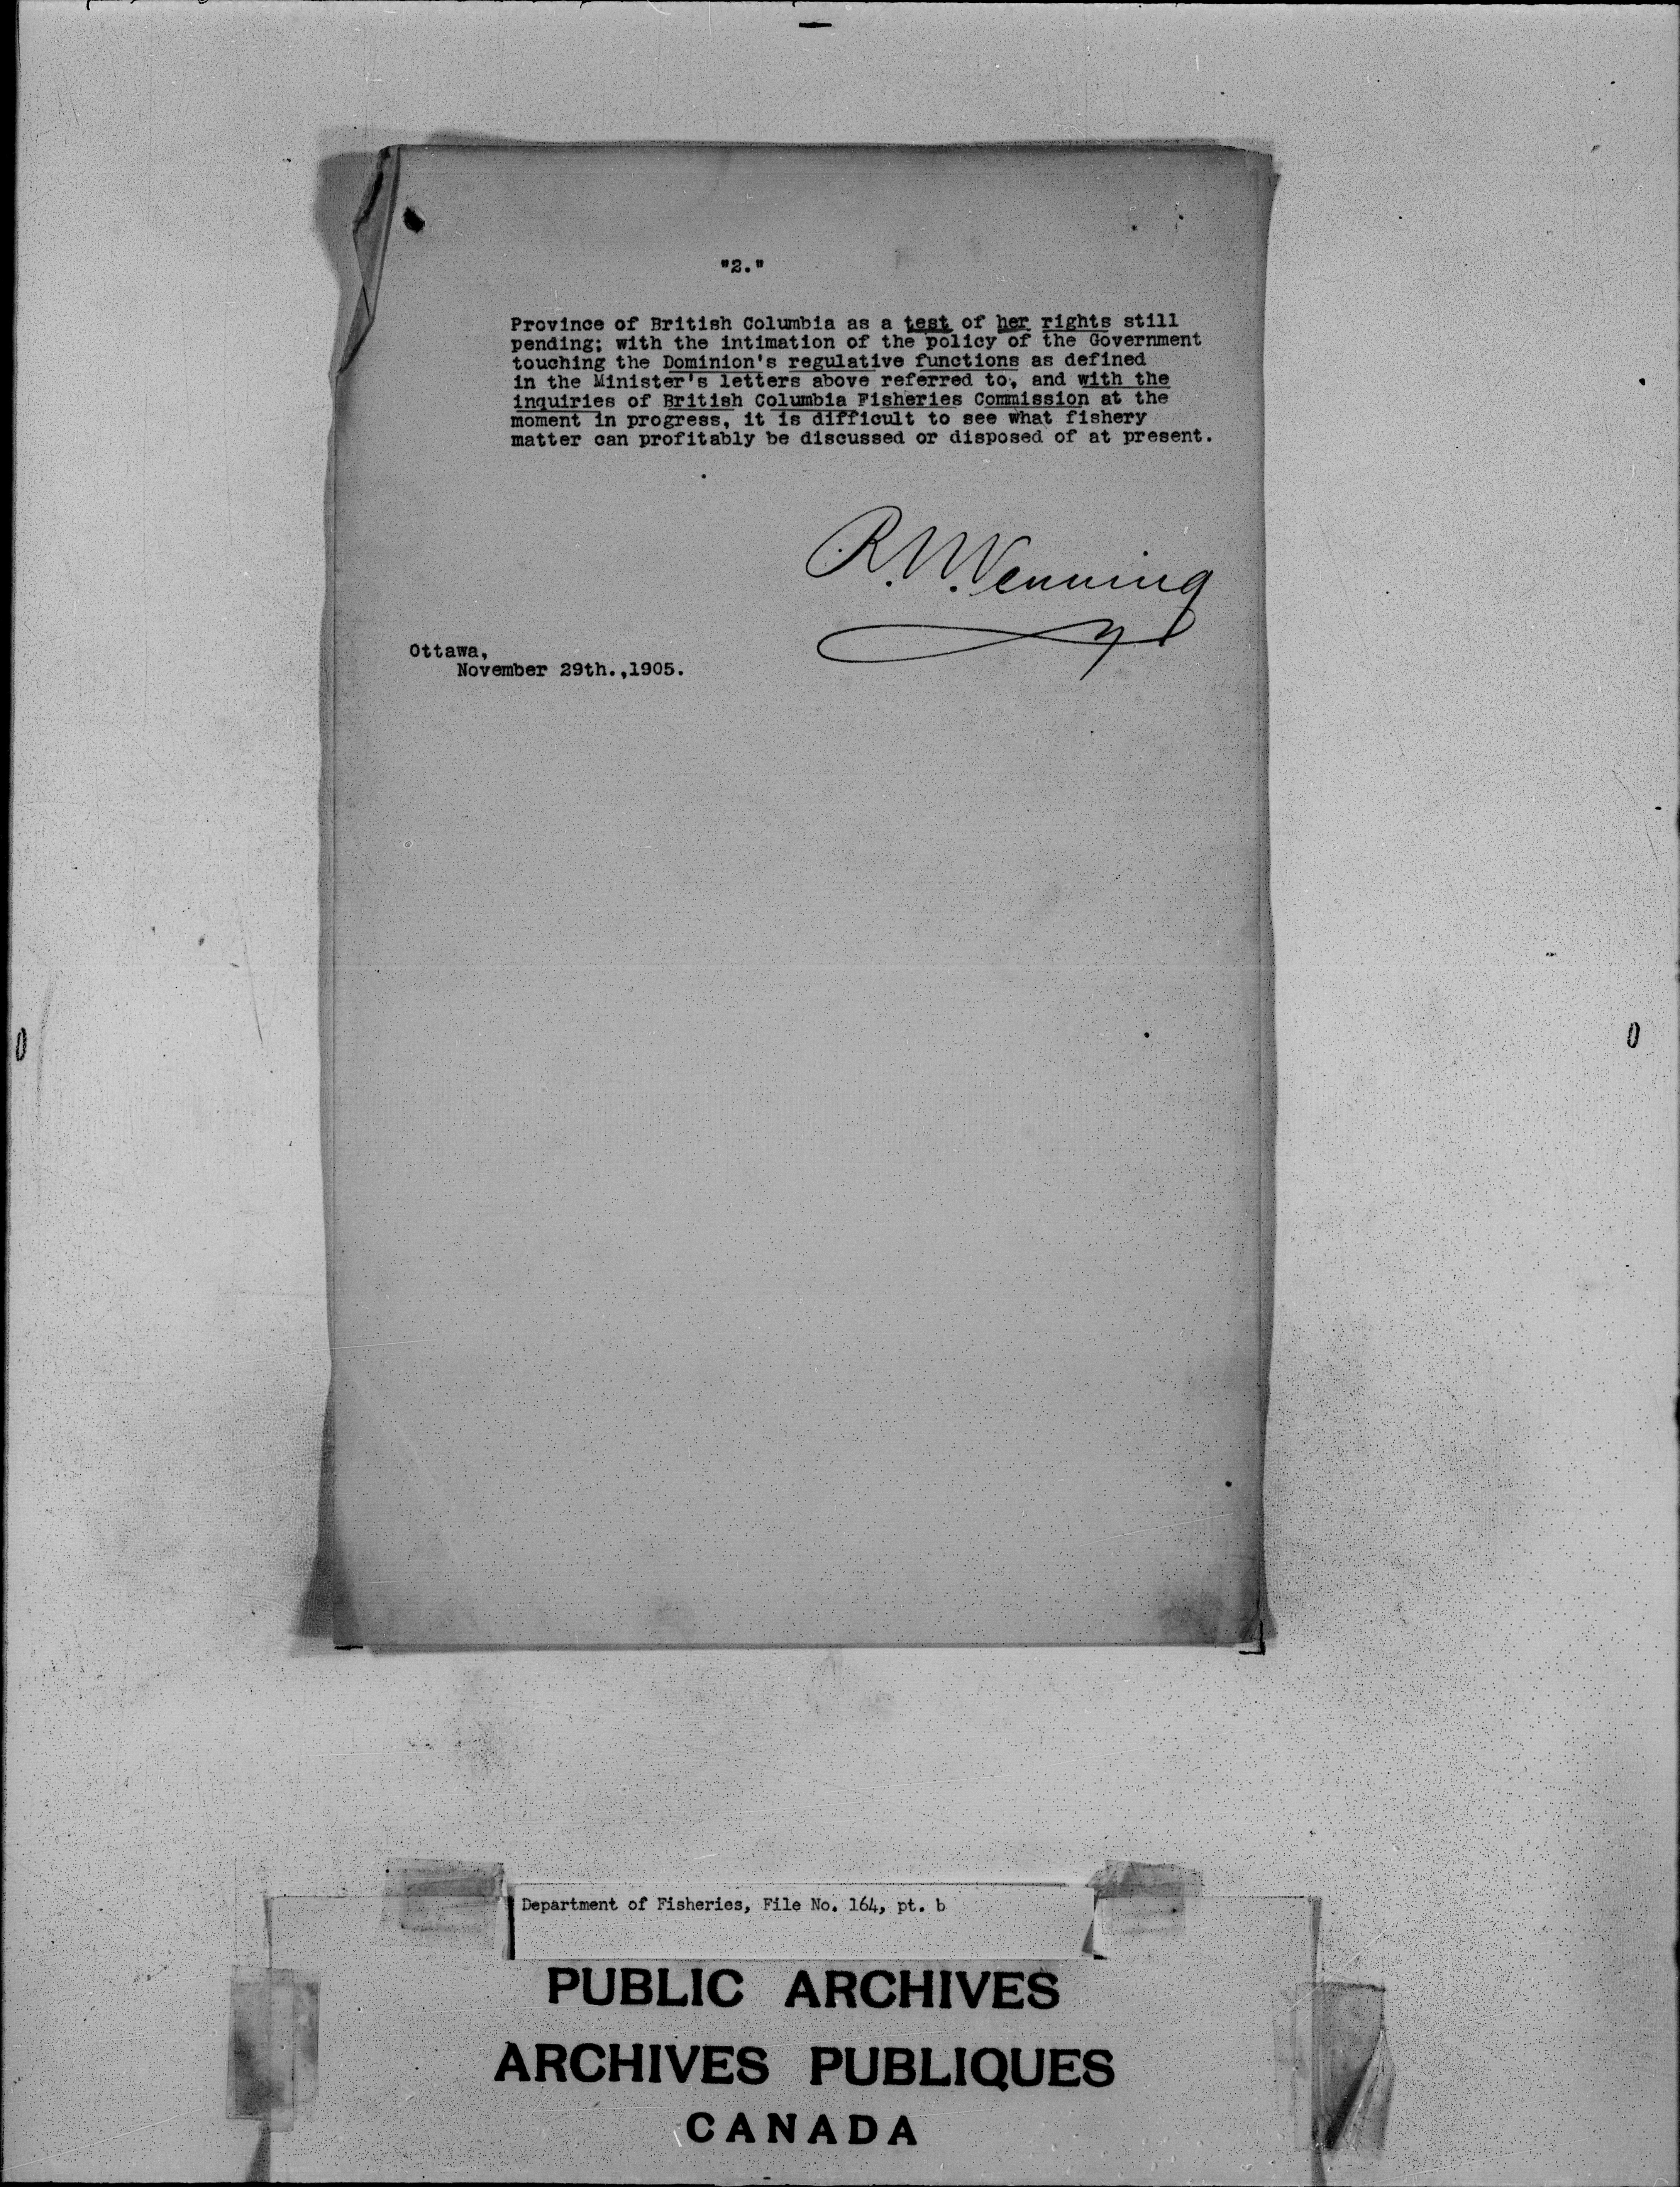 "2."
Province of British Columbia as a test of her rights still
pending; with the intimation of the policy of the Government
touching the Dominion's regulative functions as defined
in the Minister's letters above referred to, and with the
inquiries of British Columbia Fisheries Commission at the
moment in progress, it is difficult to see what fishery
matter can profitably be discussed or disposed of at present.
R.N. Venning
Ottawa,
November 29th.,1905.
Department of Fisheries, File No. 164, pt. b
PUBLIC ARCHIVES
ARCHIVES PUBLIQUES
CANADA